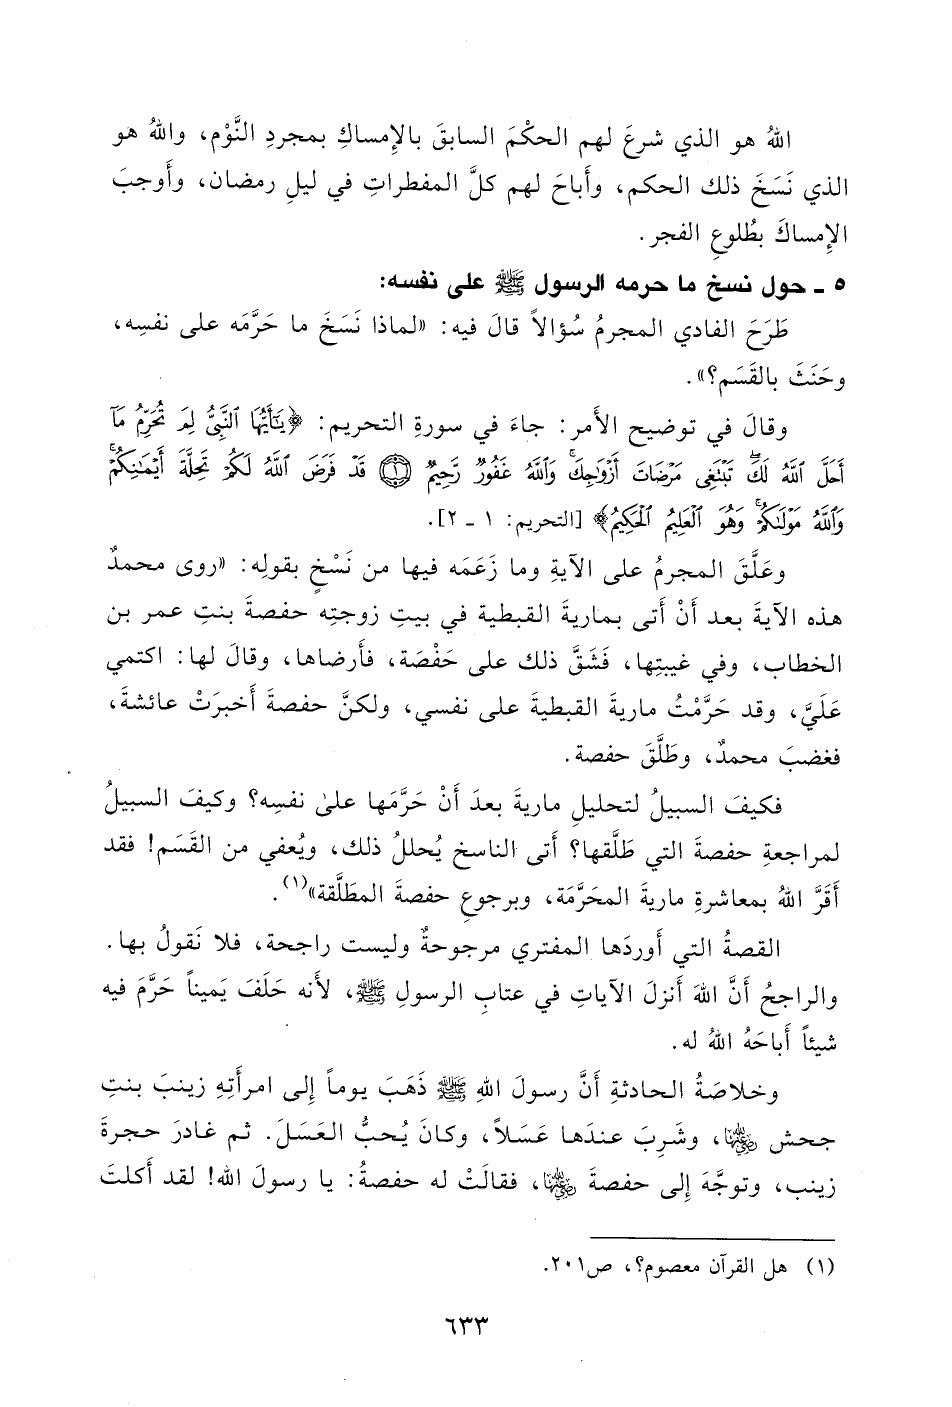 اللهُ هو الذي شرعَ لهم الحكْمَ السابقَ بالإِمساكِ بمجردِ النَّوْم، واللهُ هو
الذي نَسَخَ ذلك الحكم، وأَباحَ لهم كلَّ المفطراتِ في ليلِ رمضان، وأَوجبَ
الإِمساكَ بطُلوعِ الفجر.
٥ ـ حول نسخ ما حرمه الرسول ﷺ على نفسه:
طَرَحَ الفادي المجرمُ سُؤالاً قالَ فيه: «لماذا نَسَخَ ما حَرَّمَه على نفسِه،
وحَنَثَ بالقَسَم؟».
وقالَ في توضيح الأَمر: جاءَ في سورةِ التحريم: ﴿يَٰٓأَيُّهَا ٱلنَّبِىُّ لِمَ تُحَرِّمُ مَآ
أَحَلَّ ٱللَّهُ لَكَۖ تَبْتَغِى مَرْضَاتَ أَزْوَٰجِكَۚ وَٱللَّهُ غَفُورٌ رَّحِيمٌ ۝١ قَدْ فَرَضَ ٱللَّهُ لَكُمْ تَحِلَّةَ أَيْمَٰنِكُمْۚ
وَٱللَّهُ مَوْلَىٰكُمْۖ وَهُوَ ٱلْعَلِيمُ ٱلْحَكِيمُ﴾ [التحريم: ١ ـ ٢].
وعَلَّقَ المجرمُ على الآيةِ وما زَعَمَه فيها من نَسْخٍ بقولِه: «روى محمدٌ
هذه الآيةَ بعد أَنْ أَتى بماريةَ القبطيةِ في بيتِ زوجتِه حفصةَ بنتِ عمر بن
الخطاب، وفي غيبتِها، فَشَقَّ ذلك على حَفْصَة، فأَرضاها، وقالَ لها: اكتمي
عَلَيَّ، وقد حَرَّمْتُ ماريةَ القبطيةَ على نفسي، ولكنَّ حفصةَ أَخبرَتْ عائشةَ،
فغضبَ محمدٌ، وطَلَّقَ حفصة.
فكيفَ السبيلُ لتحليلِ ماريةَ بعدَ أَنْ حَرَّمَها على نفسِه؟ وكيفَ السبيلُ
لمراجعةِ حفصةَ التي طَلَّقها؟ أَتى الناسخ يُحللُ ذلك، ويُعفي من القَسَم! فقد
أَقَرَّ اللهُ بمعاشرةِ ماريةَ المحَرَّمَة، وبرجوعِ حفصةَ المطَلَّقة»(١).
القصةُ التي أَوردَها المفتري مرجوحةٌ وليست راجحة، فلا نَقولُ بها.
والراجحُ أَنَّ اللهَ أَنزلَ الآياتِ في عتابِ الرسولِ ﷺ، لأَنه حَلَفَ يَميناً حَرَّمَ فيه
شيئاً أَباحَهُ اللهُ له.
وخلاصَةُ الحادثةِ أَنَّ رسولَ اللهِ ﷺ ذَهَبَ يوماً إِلى امرأَتِهِ زينبَ بنتِ
جحش رضي الله عنها، وشَرِبَ عندَها عَسَلاً، وكانَ يُحبُّ العَسَلَ. ثم غادرَ حجرةَ
زينب، وتوجَّهَ إِلى حفصةَ رضي الله عنها، فقالَتْ له حفصةُ: يا رسولَ الله! لقد أَكلتَ
(١) هل القرآن معصوم؟، ص٢٠١.
٦٣٣